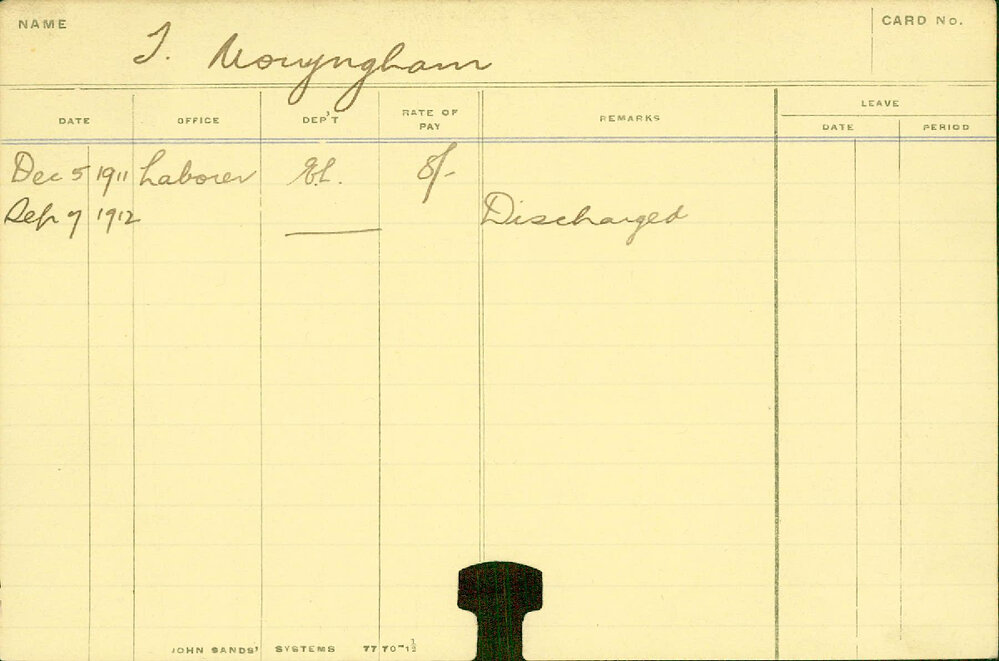 NAME
CARD No.
Mouyngham
DATE OFFICE DEP'T RATE OF PAY REMARKS LEAVE
DATE PERIOD
Dec 5 1911 Laborer El. 8/-
Sep 7 1912 Discharged
JOHN SANDS' SYSTEMS 7770-1½